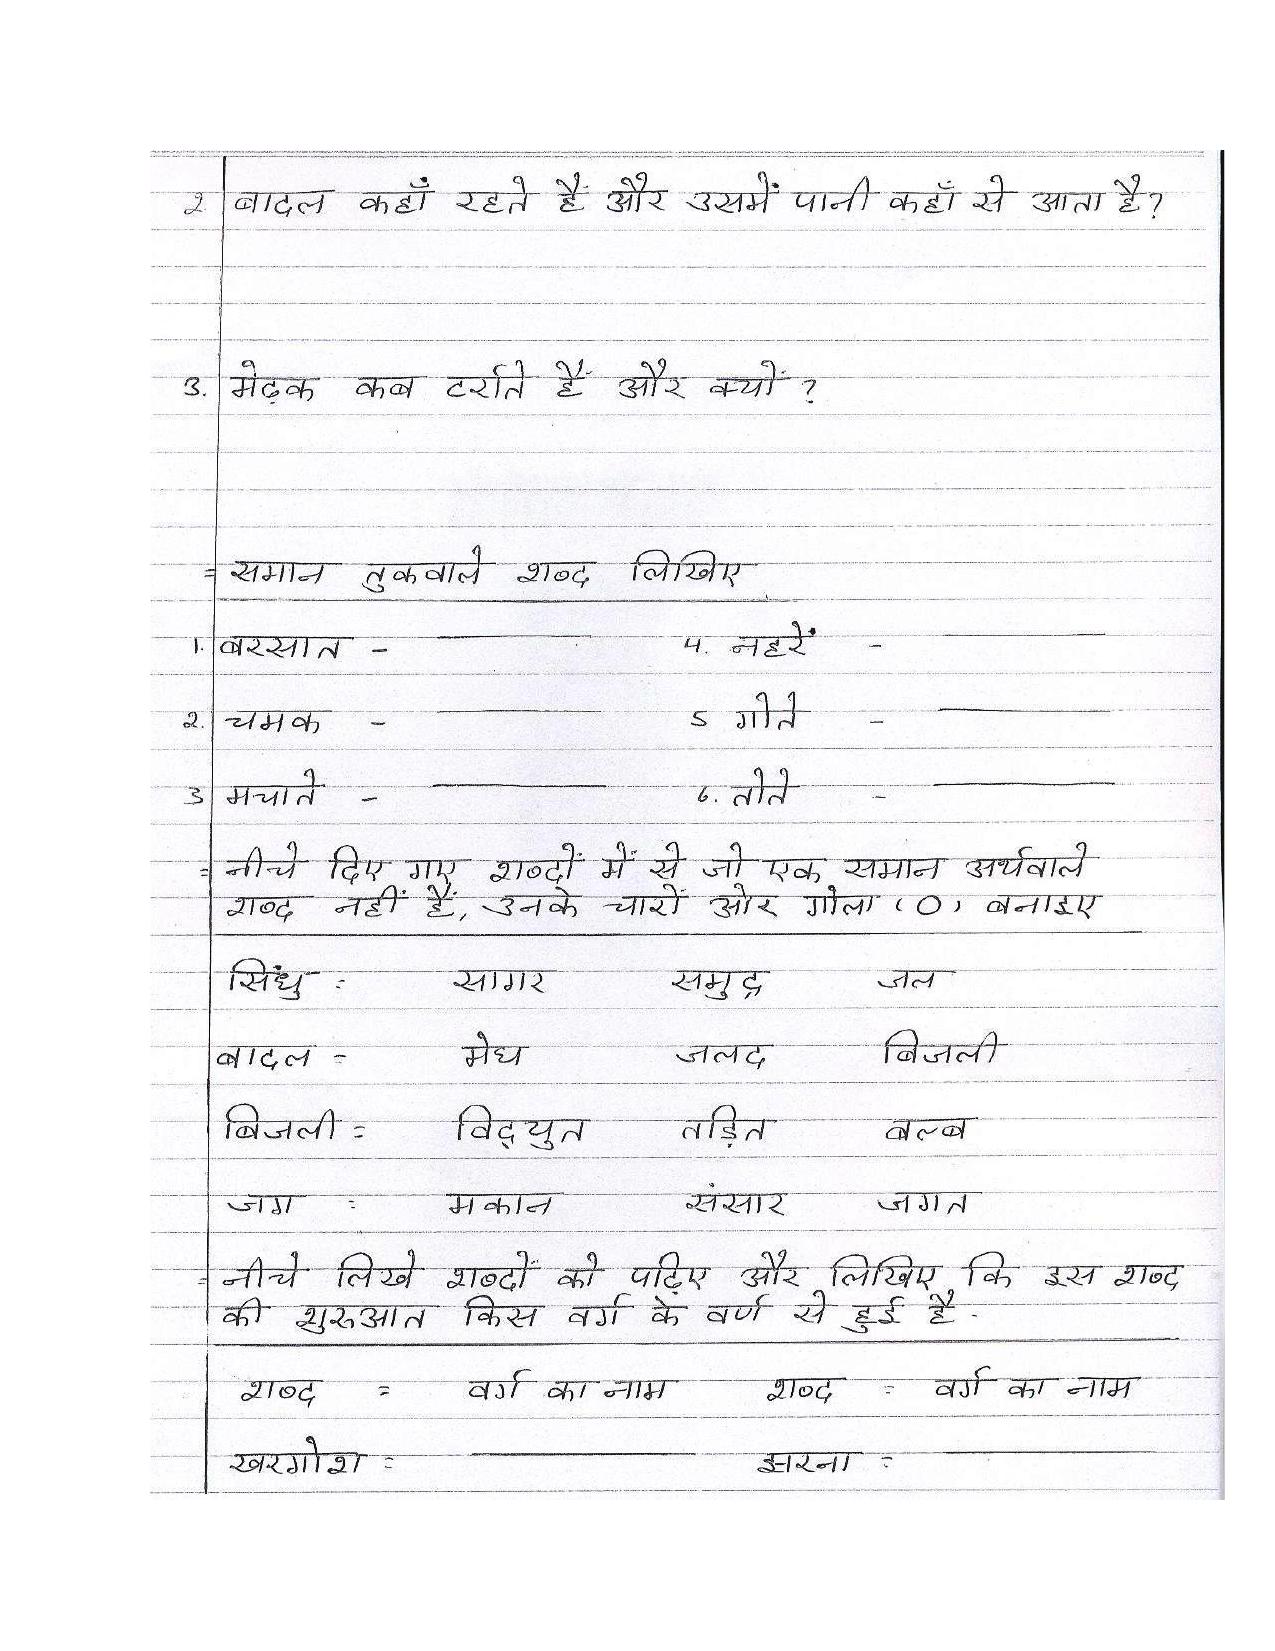 2. बादल कहाँ रहते हैं और उसमें पानी कहाँ से आता है?
3. मेढ़क कब टर्राते हैं और क्यों?
= समान तुकवाले शब्द लिखिए
1. बरसात - 4. नहरें -
2. चमक - 5 गोते -
3 मचाते - 6. तोते -
= नीचे दिए गए शब्दों में से जो एक समान अर्थवाले
शब्द नहीं हैं, उनके चारों ओर गोला (O) बनाइए
सिंधु = सागर समुद्र जल
बादल = मेघ जलद बिजली
बिजली = विद्युत तड़ित बल्ब
जग = मकान संसार जगत
= नीचे लिखे शब्दों को पढ़िए और लिखिए कि इस शब्द
की शुरुआत किस वर्ग के वर्ण से हुई है.
शब्द = वर्ग का नाम शब्द = वर्ग का नाम
खरगोश = झरना =